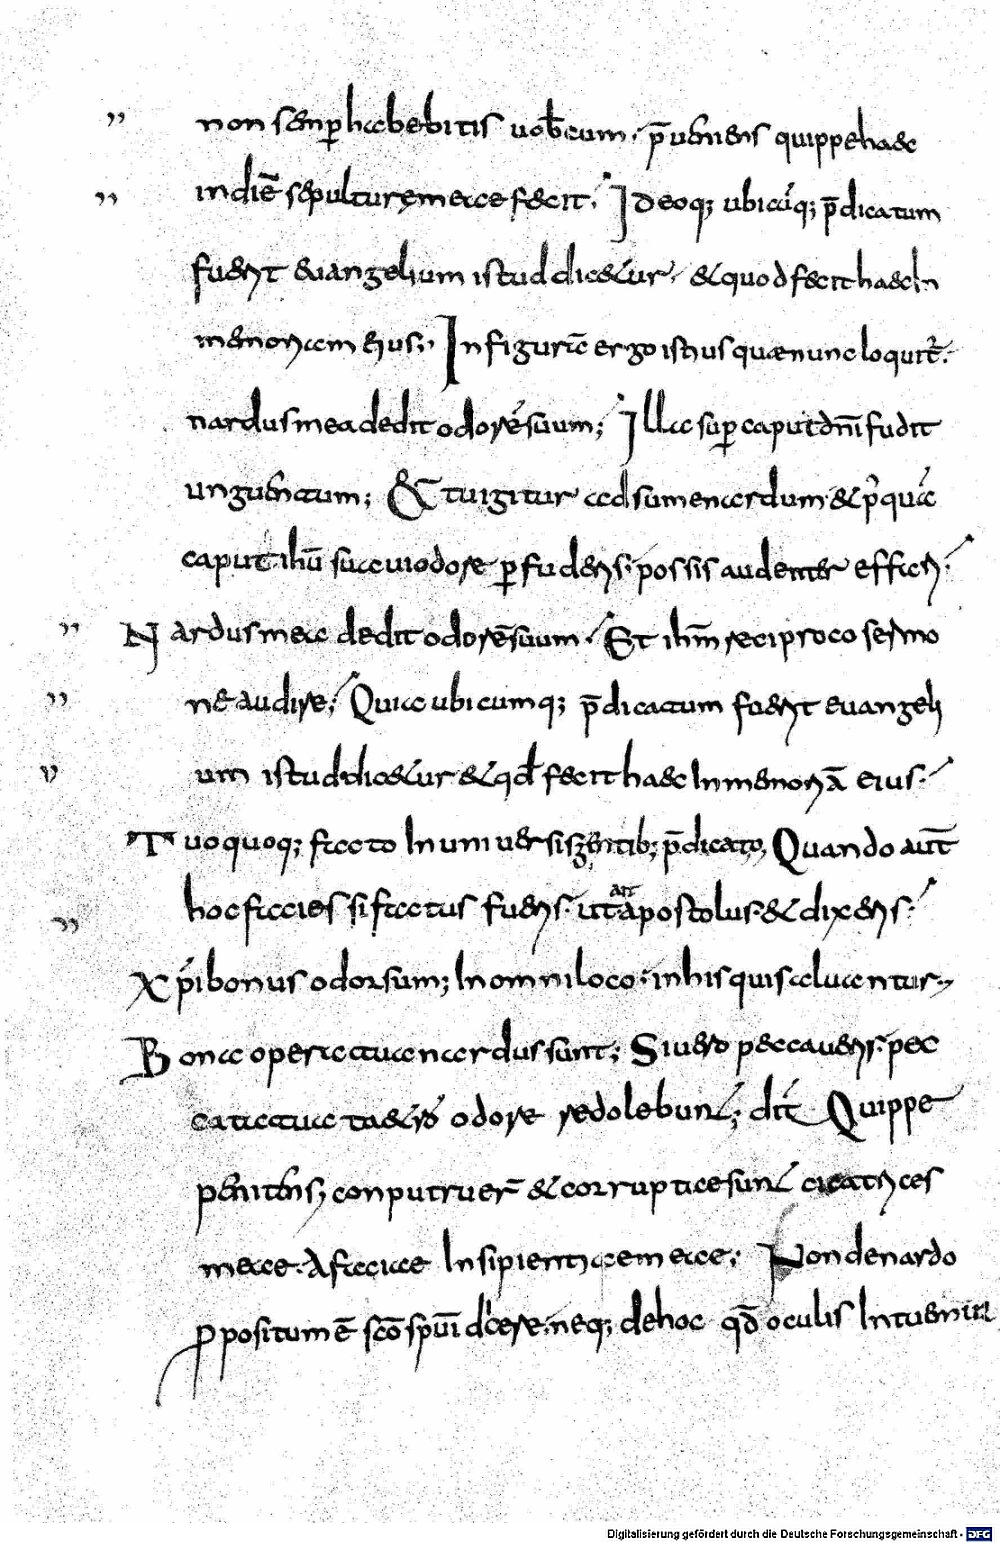 non semp̱ habebitis uobcum. p̄ueniens quippe haec
in diē sepulturę meae fecit. Ideoq; ubicūq; p̄dicatum
fuerit euangelium istud dicetur. et quod fecit haec In
memoriam eius; In figura ergo istius quae nunc loquit̄.
nardus mea dedit odorē suum; Illa sup̱ caput dn̄i fudit
unguentum; Et tu igitur adsume nardum et p̄ quā
caput ih̄u suaui odore p̱fuderis. possis audenter efficeri.
Nardus mea dedit odorē suum. Et ih̄m reciproco sermo
ne audire; Quia ubicumq; p̄dicatum fuerit euangeli
um istud dicetur et qd̄ fecit haec In memoriā eius.
Tuo quoq; facto In uniuersis gentib; p̄dicato, Quando aut̄
hoc facies si factus fueris. ut ait apostolus. et dixeris.
Xp̄i bonus odor sum; In omni loco. in his qui saluantur.
Bona opera tua nardus sunt; Si uero peccaueris. pec
cata tua taetro odore redolebunt; dīt Quippe
penitens, conputruer̄ et corruptae sunt cicatrices
meae. A facie Insipientiae meae; Non de nardo
p̱positum ē sc̄o sp̄ui dicere. neq; de hoc qd̄ oculis Intuemur